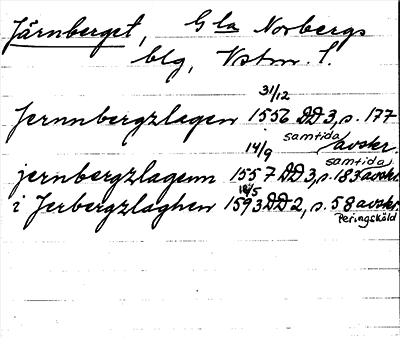 Järnberget, Gla Norbergs
blg, Vstm. l.
31/12
Jernnbergzlagen 1556 DD3, s. 177
samtida avskr.
14/9
samtida
jernbergzlagenn 1557 DD3, s. 183 avskr.
i Jerbergzlaghen 1593 DD2, s. 58 avskr.
Peringskiöld